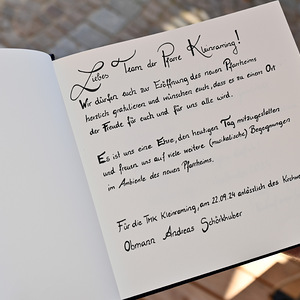 Liebes Team der Pfarre Kleinraming!
Wir dürfen euch zur Eröffnung des neuen Pfarrheims
herzlich gratulieren und wünschen euch, dass es zu einem Ort
der Freude für euch und für uns alle wird.
Es ist uns eine Ehre, den heutigen Tag mitzugestalten
und freuen uns auf viele weitere (musikalische) Begegnungen
im Ambiente des neuen Pfarrheims.
Für die TMK Kleinraming, am 22.09.24 anlässlich des
Obmann Andreas Schörkhuber